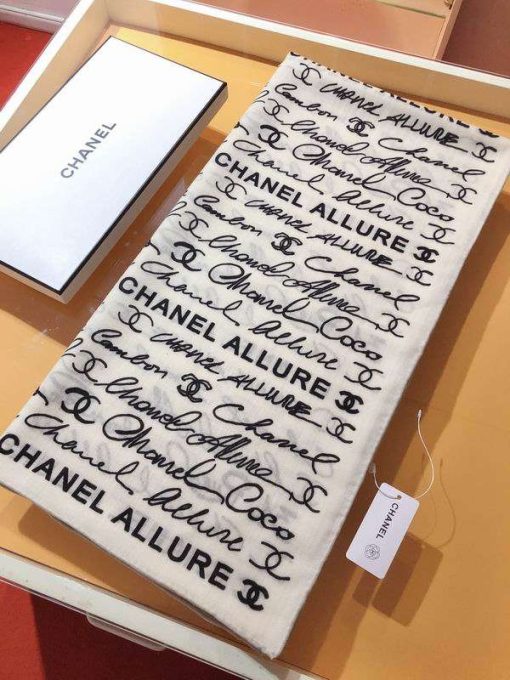 CHANEL
CHANEL ALLURE
CHANEL ALLURE
Cambon Chanel
Chanel Allure
Chanel Coco
Chanel Allure
CHANEL ALLURE
CHANEL ALLURE
Cambon Chanel
Chanel Allure
Chanel Coco
Chanel Allure
CHANEL ALLURE
CHANEL ALLURE
Cambon Chanel
Chanel Allure
Chanel Coco
Chanel Allure
CHANEL ALLURE
CHANEL